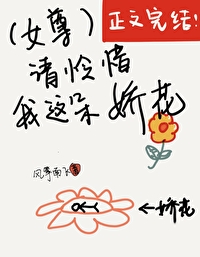 (女尊)
正文完结!
请怜惜
我这朵娇花
←娇花